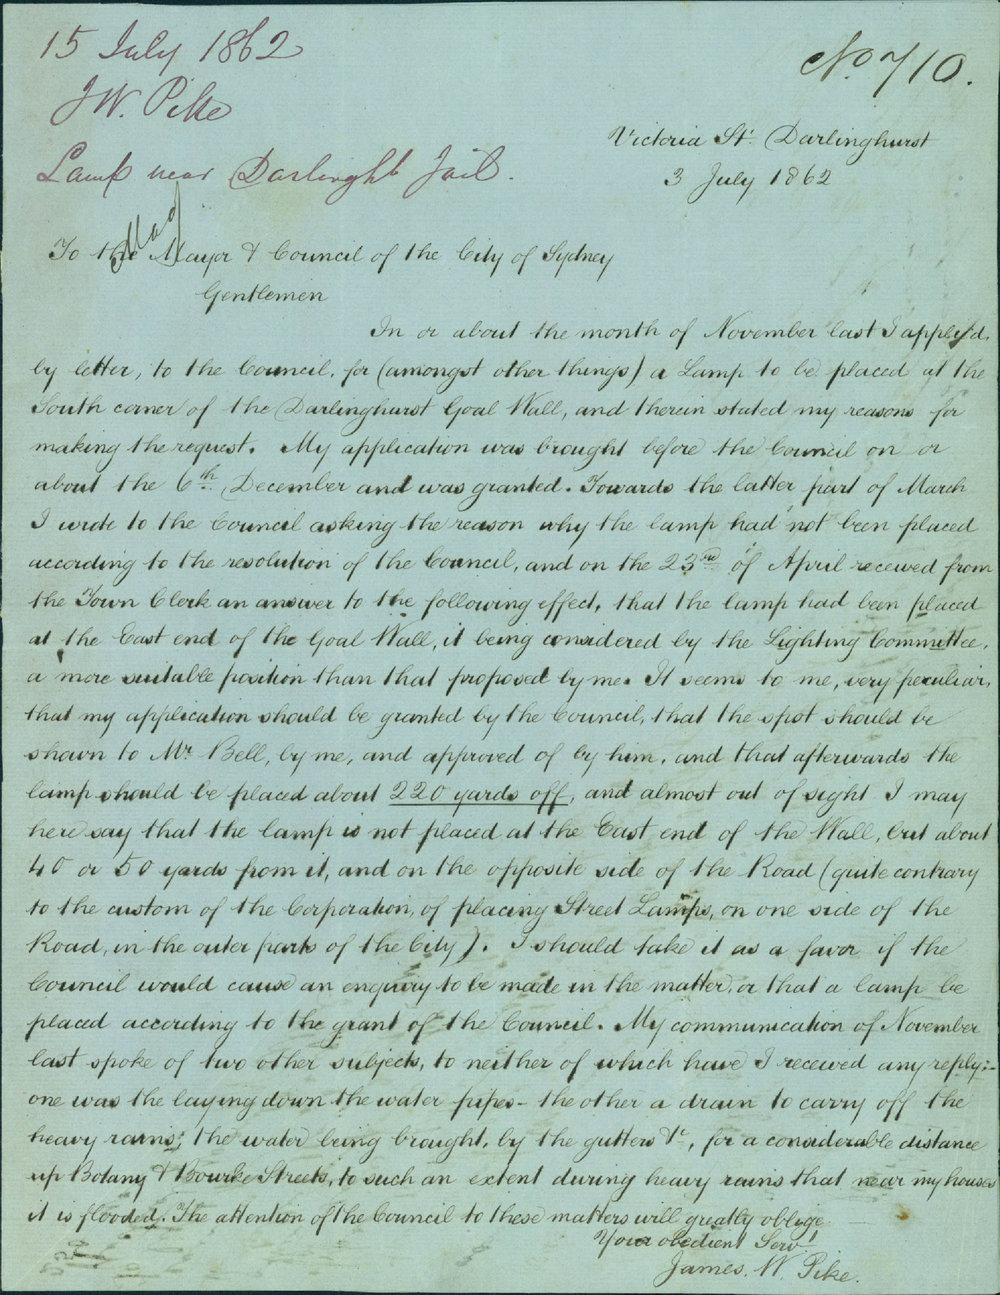 15 July 1862
JW. Pike
Lamp near Darlinght Jail.
No. 710.
Victoria St. Darlinghurst
3 July 1862
To the Mayor & Council of the City of Sydney
Gentlemen
In or about the month of November last I applied,
by letter, to the Council, for (amongst other things) a Lamp to be placed at the
South corner of the Darlinghurst Goal Wall, and therein stated my reasons for
making the request. My application was brought before the Council on or
about the 6th December and was granted. Towards the latter part of March
I wrote to the Council asking the reason why the lamp had not been placed
according to the resolution of the Council, and on the 23rd of April received from
the Town Clerk an answer to the following effect, that the lamp had been placed
at the East end of the Goal Wall, it being considered by the Lighting Committee,
a more suitable position than that proposed by me. It seems to me, very peculiar,
that my application should be granted by the Council, that the spot should be
shown to Mr Bell, by me, and approved of by him, and that afterwards the
lamp should be placed about 220 yards off, and almost out of sight I may
here say that the lamp is not placed at the East end of the Wall, but about
40 or 50 yards from it, and on the opposite side of the Road (quite contrary
to the custom of the Corporation, of placing Street Lamps, on one side of the
Road, in the outer parts of the City). I should take it as a favor if the
Council would cause an enquiry to be made in the matter, or that a lamp be
placed according to the grant of the Council. My communication of November
last spoke of two other subjects, to neither of which have I received any reply:-
one was the laying down the water pipes - the other a drain to carry off the
heavy rains; the water being brought, by the gutters &c, for a considerable distance
up Botany & Bourke Streets, to such an extent during heavy rains that near my houses
it is flooded. The attention of the Council to these matters will greatly oblige
Your obedient Serv
James. W. Pike.